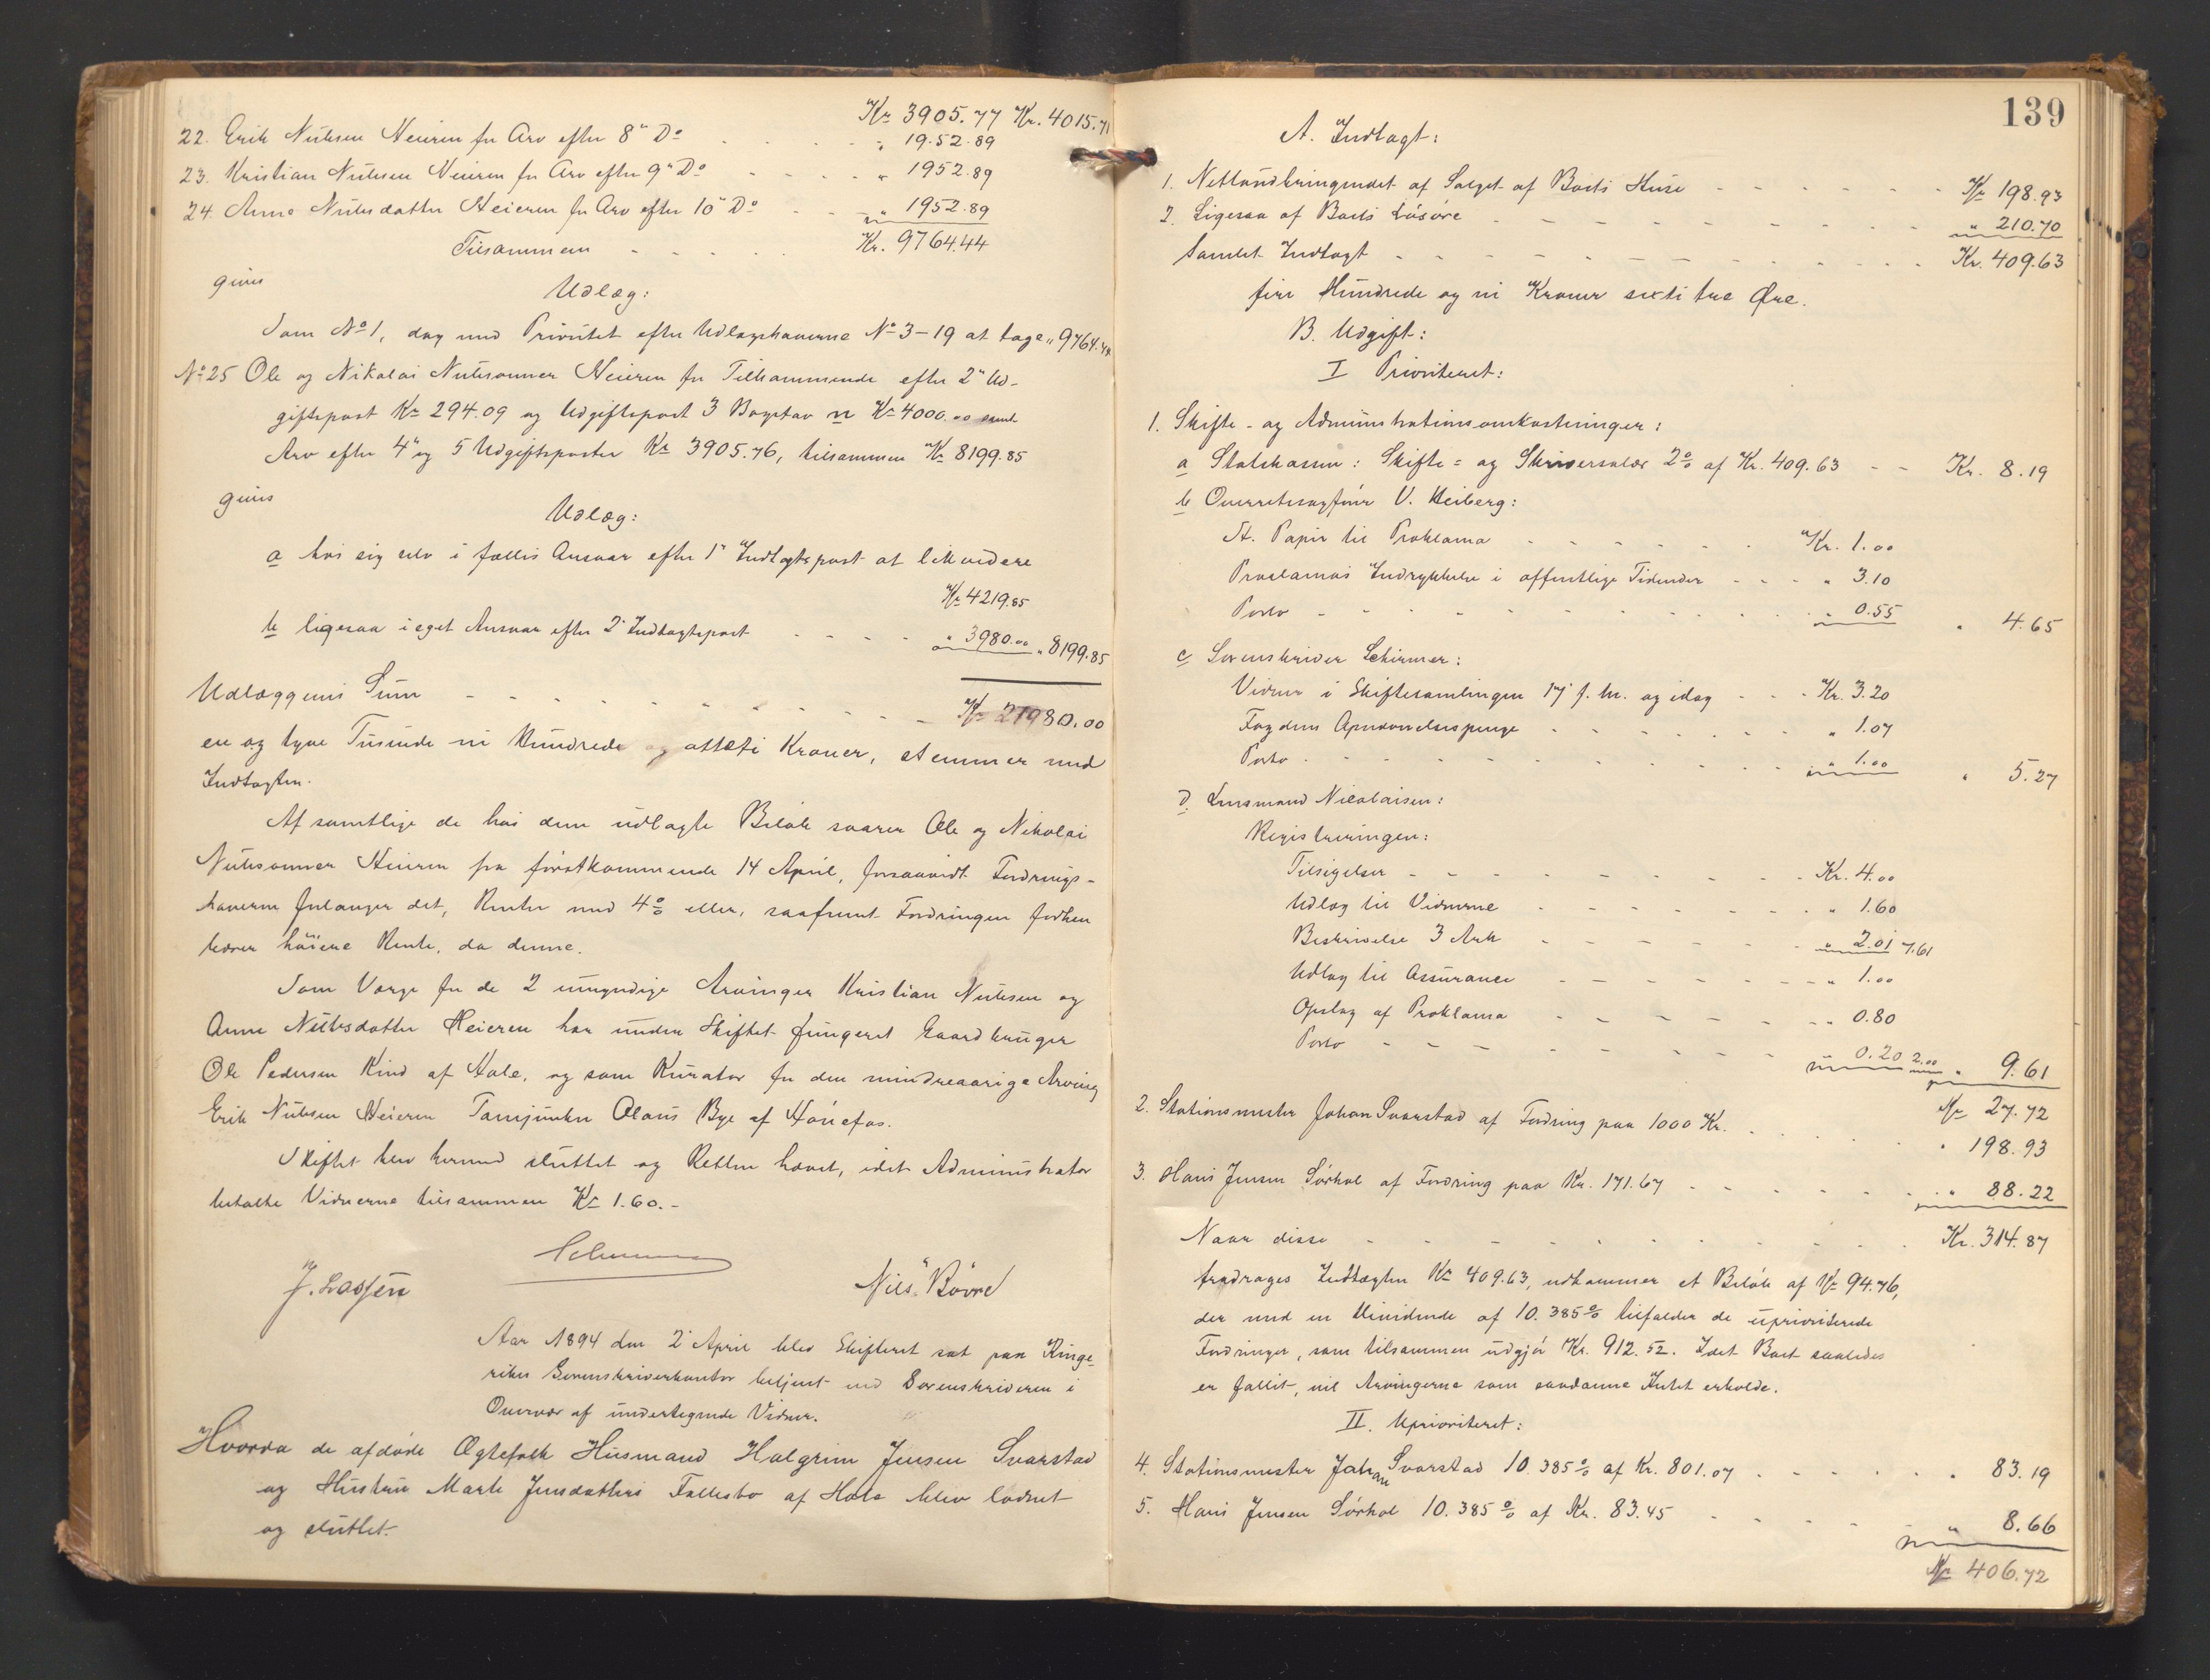 Kr 3905.77 Kr. 4015.71
22. Erik Nubsen Heieren for Arv efter 8" Do - - - " 19.52.89
23. Kristian Nubsen Heieren for Arv efter 9" Do - - - " 1952.89
24. Anne Nubsdatter Heieren for Arv efter 10" Do - - " 1952.89
Tilsammen - - - - Kr. 9764.44
gives
Udlæg:
Som No 1, dog med Prioritet efter Udlægshaverne No 3-19 at tage " 9764.44
No 25 Ole og Nikolai Nubsønner Heieren for Tilkommende efter 2" Ud-
giftspost Kr 294.09 og Udgiftspost 3 Bogstav n Kr 4000.00 samt
Arv efter 4" og 5 Udgiftsposter Kr 3905.76, tilsammen Kr 8199.85
gives
Udlæg:
a hos sig selv i fælles Ansvar efter 1" Indtægtspost at likvidere
Kr 4219.85
b ligesaa i eget Ansvar efter 2" Indtægtspost - - - - " 3980.00 " 8199.85
Udlæggenes Sum - - - - - - - - Kr 21980.00
en og tyve Tusinde ni Hundrede og otteti Kroner, stemmer med
Indtægten.
Af samtlige de hos dem udlagte Beløb svarer Ole og Nikolai
Nubsønner Heieren fra førstkommende 14 April, forsaavidt Fordrings-
haverne forlanger det, Renter med 4% eller, saafremt Fordringen forhen
bærer høiere Rente, da denne.
Som Værge for de 2 umyndige Arvinger Kristian Nubsen og
Anne Nubsdatter Heieren har under Skiftet fungeret Gaardbruger
Ole Pedersen Rind af Hole, og som Kurator for den mindreaarige Arving
Erik Nubsen Heieren Olaus Bye af Hønefos.
Skiftet blev hermed sluttet og Retten hævet, idet Administrator
betalte Vidnerne tilsammen Kr 1.60.-
Schirmer
J. Lassen Nils Bøvre
Aar 1894 den 2 April blev Skifteret sat paa Ringe-
rikes Sorenskriverkontor betjent ved Sorenskriveren i
Overvær af undertegnede Vidner.
Hvorda de afdøde Ægtefolk Husmand Halgrim Jensen Svarstad
og Hustru Marte Jensdatters Fællesbo af Hole blev lodnet
og sluttet.
139
A. Indtægt:
1. Nettoudbringendet af Salget af Boets Huse - - - - - - Kr 198.93
2. Ligesaa af Boets Løsøre - - - - - - - - " 210.70
Samlet Indtægt - - - - - - - - - Kr. 409.63
fire Hundrede og ni Kroner sexti tre Øre.
B. Udgift:
I Prioriteret:
1. Skifte- og Administrationsomkostninger:
a Statskassen: Skifte= og Skriversalær 2% af Kr. 409.63 - - Kr. 8.19
b Overretssagfører V. Heiberg:
St. Papir til Proklama - - - - - - Kr. 1.00
Proclamas Indrykkelse i offentlige Tidender - - - " 3.10
Porto - - - - - - - - - " 0.55 " 4.65
c Sorenskriver Schirmer:
Vidner i Skiftesamlingen 17 f. M. og idag - - - Kr. 3.20
Fogdens Opnævnelsespenge - - - - - - " 1.07
Porto - - - - - - - - - " 1.00 " 5.27
d. Lensmand Nicolaisen:
Registreringen:
Tilsigelser - - - - - - - - Kr. 4.00
Udlæg til Vidnerne - - - - - - - " 1.60
Beskrivelse 3 Ark - - - - - - - " 2.01 7.61
Udlæg til Assurance - - - - - - " 1.00
Opslag af Proklama - - - - - - " 0.80
Porto - - - - - - - - 0.20 2.00 " 9.61
Kr 27.72
2. Stationsmester Johan Svarstad af Fordring paa 1000 Kr. - - - - - " 198.93
3. Hans Jensen Sørhol af Fordring paa Kr. 171.67 - - - - - - " 88.22
Naar disse - - - - - - - - - Kr. 314.87
fradrages Indtægten Kr 409.63, udkommer et Beløb af Kr 94.76,
der med en Dividende af 10.385% tilfalder de uprioriterede
Fordringer, som tilsammen udgjør Kr. 912.52. Idet Boet saaledes
er fallit, vil Arvingerne som saadanne Intet erholde.
II. Uprioriteret:
4. Stationsmester Johan Svarstad 10.385% af Kr. 801.07 - - - - - " 83.19
5. Hans Jensen Sørhol 10.385% af Kr. 83.45 - - - - - " 8.66
Kr 406.72